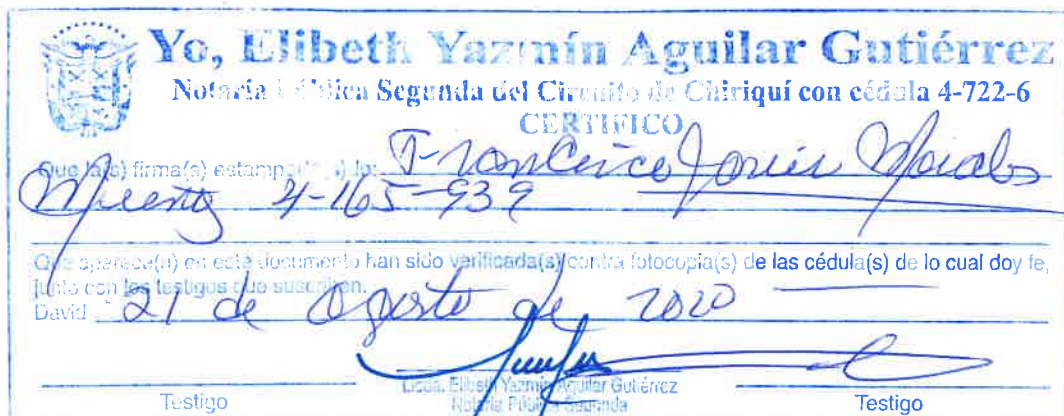 Yo, Elibeth Yazmín Aguilar Gutiérrez
Notaria Pública Segunda del Circuito de Chiriquí con cédula 4-722-6
CERTIFICO
Que la(s) firma(s) estampada(s) Francisco Javier Morales
4-165-939
Que aparece(n) en este documento han sido verificada(s) contra fotocopia(s) de las cédula(s) de lo cual doy fe,
junto con los testigos que suscriben.
David 21 de Agosto de 2020
Licda. Elibeth Yazmín Aguilar Gutiérrez
Testigo Notaria Pública Segunda Testigo